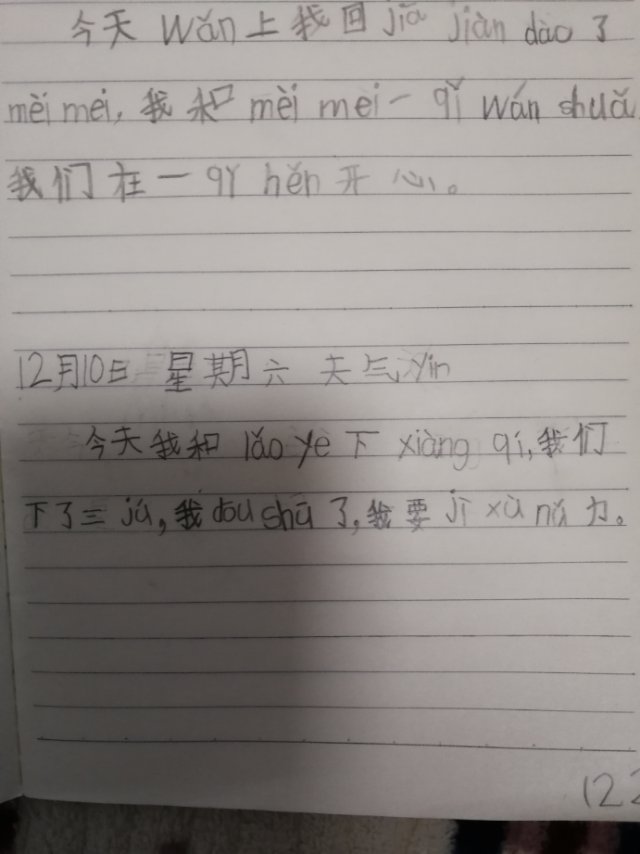 今天 wǎn上我回jiā jiàn dào了
mèi mei，我和mèi mei一qǐ wán shuǎ
我们在一qǐ hěn开心。
12月10日 星期六 天气yīn
今天我和lǎo ye下xiàng qí，我们
下了三jú，我dōu shū了，我要jì xù nǔ力。